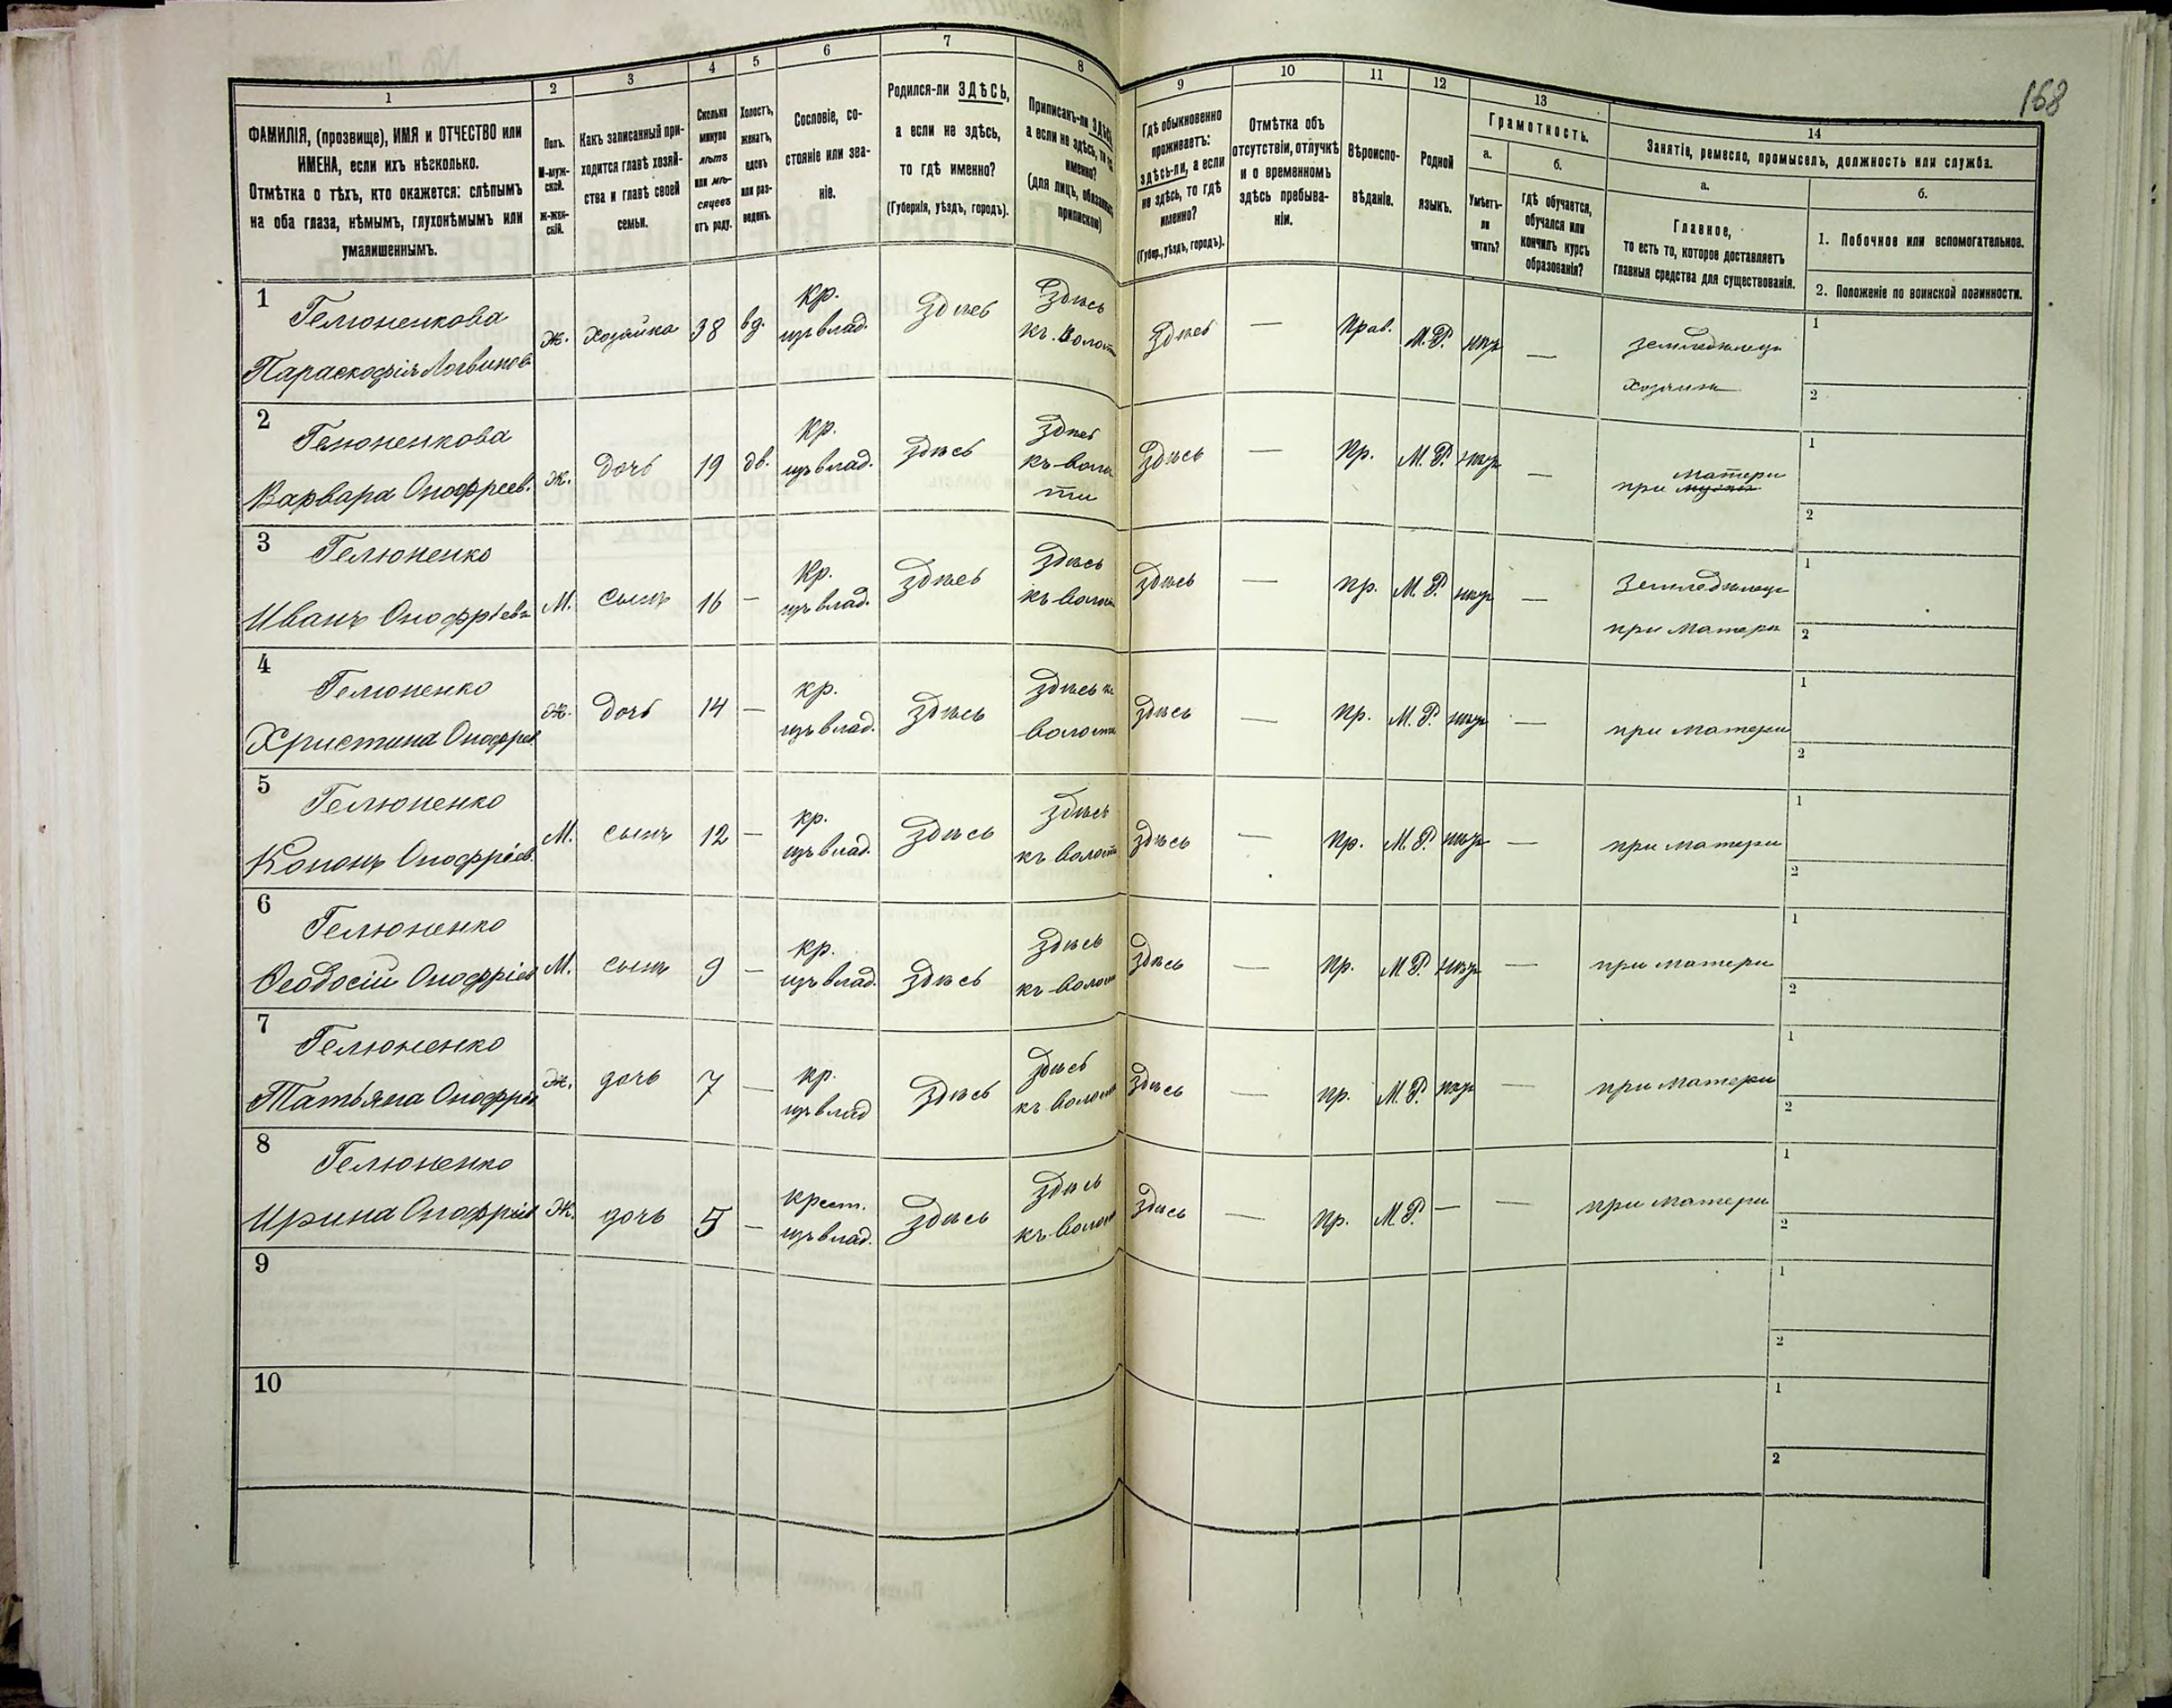 168
1
2
3
4
5
6
7
8
9
10
11
12
13
14
ФАМИЛІЯ, (прозвище), ИМЯ и ОТЧЕСТВО или
ИМЕНА, если ихъ нѣсколько.
Отмѣтка о тѣхъ, кто окажется: слѣпымъ
на оба глаза, нѣмымъ, глухонѣмымъ или
умалишеннымъ.
Полъ.
М-муж-
ской.
Ж-жен-
скій.
Какъ записанный при-
ходится главѣ хозяй-
ства и главѣ своей
семьи.
Сколько
минуло
лѣтъ
или мѣ-
сяцевъ
отъ роду.
Холостъ,
женатъ,
вдовъ
или раз-
веденъ.
Сословіе, со-
стояніе или зва-
ніе.
Родился-ли ЗДѢСЬ,
а если не здѣсь,
то гдѣ именно?
(Губернія, уѣздъ, городъ).
Приписанъ-ли ЗДѢСЬ,
а если не здѣсь, то гдѣ
именно?
(для лицъ, обязанныхъ
припиской)
Гдѣ обыкновенно
проживаетъ:
здѣсь-ли, а если
не здѣсь, то гдѣ
именно?
(Губер., уѣздъ, городъ).
Отмѣтка объ
отсутствіи, отлучкѣ
и о временномъ
здѣсь пребыва-
ніи.
Вѣроиспо-
вѣданіе.
Родной
языкъ.
Грамотность.
а.
Умѣетъ-
ли
читать?
б.
гдѣ обучается,
обучался или
кончилъ курсъ
образованія?
Занятіе, ремесло, промыселъ, должность или служба.
а.
Главное,
то есть то, которое доставляетъ
главныя средства для существованія.
б.
1. Побочное или вспомогательное.
2. Положеніе по воинской повинности.
1
Гелюненкова
Параскофія Логвинов
Ж.
хозяйка
38
вд.
кр.
изъ влад.
здѣсь
здѣсь
къ волости
здѣсь
—
Прав.
М. Р.
нѣтъ
—
земледѣлецъ
хозяинъ
1
2
2
Гелюненкова
Варвара Онофреев.
Ж.
дочь
19
дв.
кр.
изъ влад.
здѣсь
здѣсь
къ волос
ти
здѣсь
—
Пр.
М. Р.
нѣтъ
—
матери
при
1
2
3
Гелюненко
Иванъ Онофріевъ
М.
сынъ
16
—
кр.
изъ влад.
здѣсь
здѣсь
къ волост
здѣсь
—
пр.
М. Р.
нѣтъ
—
Земледѣлецъ
при матери
1
2
4
Гелюненко
Христина Онофрев
Ж.
дочь
14
—
кр.
изъ влад.
здѣсь
здѣсь къ
волости
здѣсь
—
пр.
М. Р.
нѣтъ
—
при матери
1
2
5
Гелюненко
Кононъ Онофріев.
М.
сынъ
12
—
кр.
изъ влад.
здѣсь
здѣсь
къ волости
здѣсь
—
пр.
М. Р.
нѣтъ
—
при матери
1
2
6
Гелюненко
Ѳеодосій Онофріев
М.
сынъ
9
—
кр.
изъ влад.
здѣсь
здѣсь
къ волост
здѣсь
—
пр.
М. Р.
нѣтъ
—
при матери
1
2
7
Гелюненко
Татьяна Онофріев
Ж.
дочь
7
—
кр.
изъ влад
здѣсь
здѣсь
къ волост
здѣсь
—
пр.
М. Р.
нѣтъ
—
при матери
1
2
8
Гелюненко
Ирина Онофріев
Ж.
дочь
5
—
крест.
изъ влад.
здѣсь
здѣсь
къ волост
здѣсь
—
пр.
М. Р.
—
—
при матери
1
2
9
1
2
10
1
2